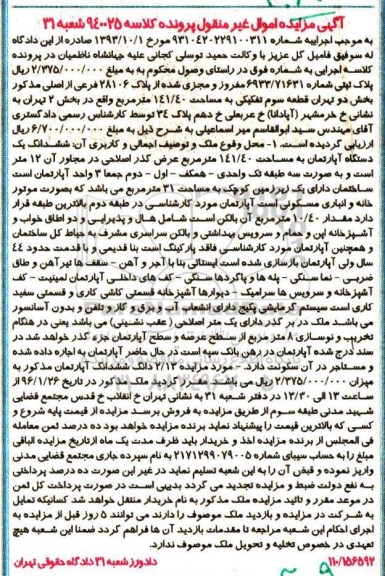 آگهی مزایده اموال غیر منقول پرونده کلاسه ۹۴۰۰۲۵ شعبه ۳۱
به موجب اجراییه شماره ۹۳۱۰۴۲۰۲۲۹۱۰۰۳۱۱ مورخ ۱۳۹۳/۱۰/۱ صادره از این دادگاه
له سوفیق فامیل کل عزیز با وکالت حمید توسلی کجانی علیه جهانشاه ناظمیان در پرونده
کلاسه اجرایی به شماره فوق در راستای وصول محکوم به به مبلغ ۲/۳۷۵/۰۰۰/۰۰۰ ریال
پلاک ثبتی شماره ۶۹۳۳/۷۱۶۳۱ مفروز و مجزی شده از پلاک ۲۸۱۰۶ فرعی از اصلی مذکور
بخش دو تهران قطعه سوم تفکیکی به مساحت ۱۴۱/۴۰ مترمربع واقع در بخش ۲ تهران به
نشانی خ خرمشهر (آپادانا) خ عربعلی خ دهم پلاک ۳۴ توسط کارشناس رسمی دادگستری
آقای مهندس سید ابوالقاسم میر اسماعیلی به شرح ذیل به مبلغ ۶/۷۰۰/۰۰۰/۰۰۰ ریال
ارزیابی گردیده است. ۱- محل وقوع ملک و توصیف اجمالی و کاربری آن: ششدانگ یک
دستگاه آپارتمان به مساحت ۱۴۱/۴۰ مترمربع عرض گذر اصلاحی در مجاور آن ۱۲ متر
است و به صورت سه طبقه تک واحدی - همکف - اول - دوم جمعا ۳ واحد آپارتمان است
ساختمان دارای یک زیرزمین کوچک به مساحت ۳۱ مترمربع می باشد که بصورت موتور
خانه و انباری مسکونی است آپارتمان مورد کارشناسی در طبقه دوم بالاترین طبقه قرار
دارد مقدار ۱۰/۴۰ مترمربع آن بالکن است شامل هال و پذیرایی و دو اطاق خواب و
آشپزخانه اپن و حمام و سرویس بهداشتی و بالکن سراسری مشرف به حیاط کل ساختمان
و همچنین آپارتمان مورد کارشناسی فاقد پارکینگ است بنا قدیمی و با قدمت حدود ۴۴
سال ولی آپارتمان بازسازی شده است ایستائی بنا با آجر و آهن - سقف ها تیر آهن و طاق
ضربی - نما سنگی - پله ها و پاگردها سنگی - کف های داخلی آپارتمان لمینیت - کف
آشپزخانه و سرویس ها سرامیک - دیوارها آشپزخانه قسمتی کاشی کاری و قسمتی سفید
کاری است سیستم گرمایشی پکیج دارای انشعاب آب و برق و گاز و تلفن و بدون آسانسور
می باشد ملک در بر گذر دارای یک متر اصلاحی (عقب نشینی) می باشد یعنی در هنگام
تخریب و نوسازی ۸ متر مربع از سطح عرصه و سطح آپارتمان جزء گذر خواهد شد در
سند درج شده آپارتمان در رهن بانک سپه است در حال حاضر آپارتمان به اجاره داده شده
و مستاجر در آن سکونت دارد. - مورد مزایده ۲/۱۳ دانگ ششدانگ آپارتمان مذکور به
میزان ۲/۳۷۵/۰۰۰/۰۰۰ ریال می باشد. مقرر گردید ملک مذکور در تاریخ ۹۶/۱/۲۶ از
ساعت ۱۳ الی ۱۳/۳۰ در دفتر شعبه ۳۱ به نشانی تهران خ انقلاب خ قدس مجتمع قضایی
شهید مدنی طبقه سوم از طریق مزایده به فروش برسد مزایده از قیمت پایه شروع و
کسی که بالاترین قیمت را پیشنهاد نماید برنده مزایده خواهد بود ده درصد ثمن معامله
فی المجلس از برنده مزایده اخذ و خریدار باید ظرف مدت یک ماه از تاریخ مزایده الباقی
مبلغ را به حساب سیبای شماره ۲۱۷۱۲۹۹۰۷۹۰۰۵ به نام سپرده جاری مجتمع قضایی مدنی
واریز نموده و قبض آن را به این شعبه تسلیم نماید در غیر این صورت ده درصد پرداختی
به نفع دولت ضبط و مزایده تجدید می گردد بدیهی است در صورت پرداخت کل ثمن
در موعد مقرر و تائید مزایده ملک مذکور به نام خریدار منتقل خواهد شد کسانیکه تمایل
به شرکت در مزایده و بازدید ملک موصوف را دارند می توانند ۵ روز قبل از مزایده به
اجرای احکام این شعبه مراجعه تا مقدمات بازدید آن ها فراهم گردد ضمنا این شعبه هیچ
تعهدی در خصوص تخلیه و تحویل ملک موصوف ندارد.
۱۱۰/۱۵۶۵۹۲ دادورز شعبه ۳۱ دادگاه حقوقی تهران